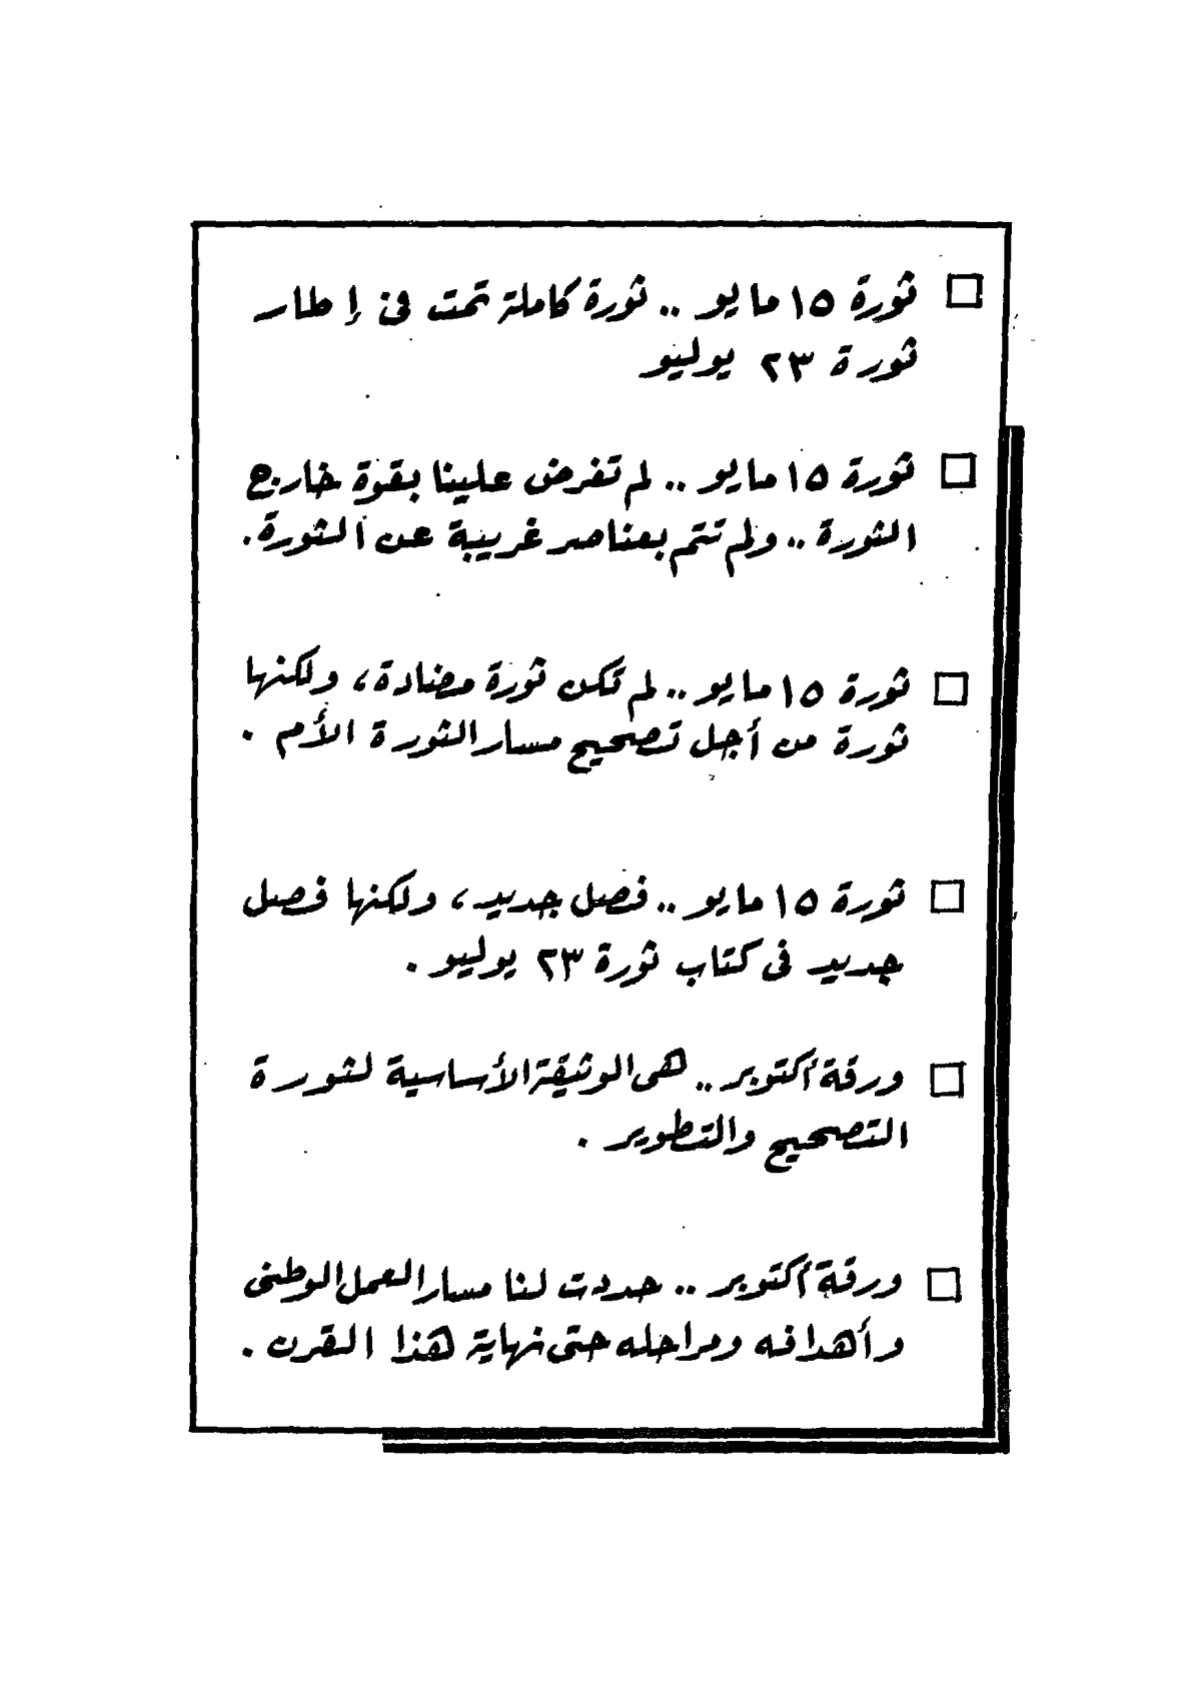 □ ثورة ١٥ مايو .. ثورة كاملة تمت فى إطار
ثورة ٢٣ يوليو
□ ثورة ١٥ مايو .. لم تفرض علينا بقوة خارج
الثورة .. ولم تتم بعناصر غريبة عن الثورة .
□ ثورة ١٥ مايو .. لم تكن ثورة مضادة ، ولكنها
ثورة من أجل تصحيح مسار الثورة الأم .
□ ثورة ١٥ مايو .. فصل جديد ، ولكنها فصل
جديد فى كتاب ثورة ٢٣ يوليو .
□ ورقة أكتوبر .. هى الوثيقة الأساسية لثورة
التصحيح والتطوير .
□ ورقة أكتوبر .. حددت لنا مسار العمل الوطنى
وأهدافه ومراحله حتى نهاية هذا القرن .